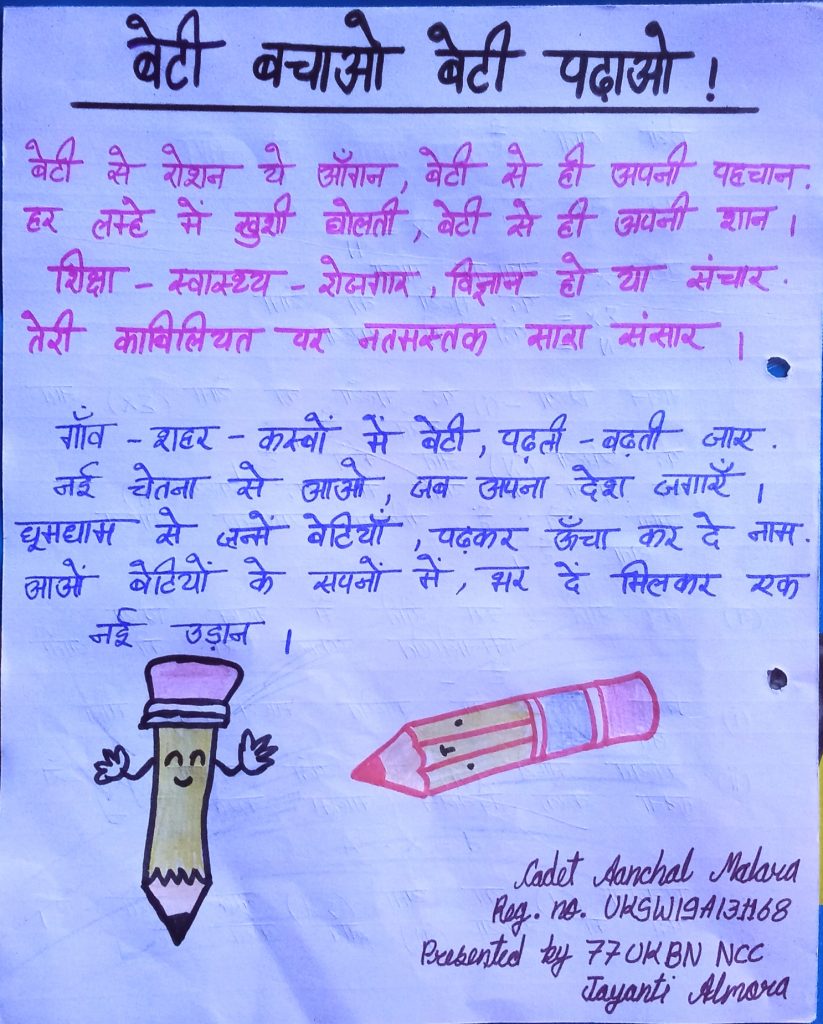 बेटी बचाओ बेटी पढ़ाओ !
बेटी से रोशन ये आँगन, बेटी से ही अपनी पहचान.
हर लम्हे में खुशी घोलती, बेटी से ही अपनी शान ।
शिक्षा - स्वास्थ्य - रोजगार, विज्ञान हो या संचार .
तेरी काबिलियत पर नतमस्तक सारा संसार ।
गाँव - शहर - कस्बों में बेटी, पढ़ती - बढ़ती जाए .
नई चेतना से आओ, जब अपना देश जगाएँ ।
धूमधाम से जन्में बेटियाँ, पढ़कर ऊँचा कर दे नाम.
आओं बेटियों के सपनों में, भर दें मिलकर एक
नई उड़ान ।
Cadet Aanchal Malara
Reg. no. UKSW19A131168
Presented by 77UKBN NCC
Jayanti Almora